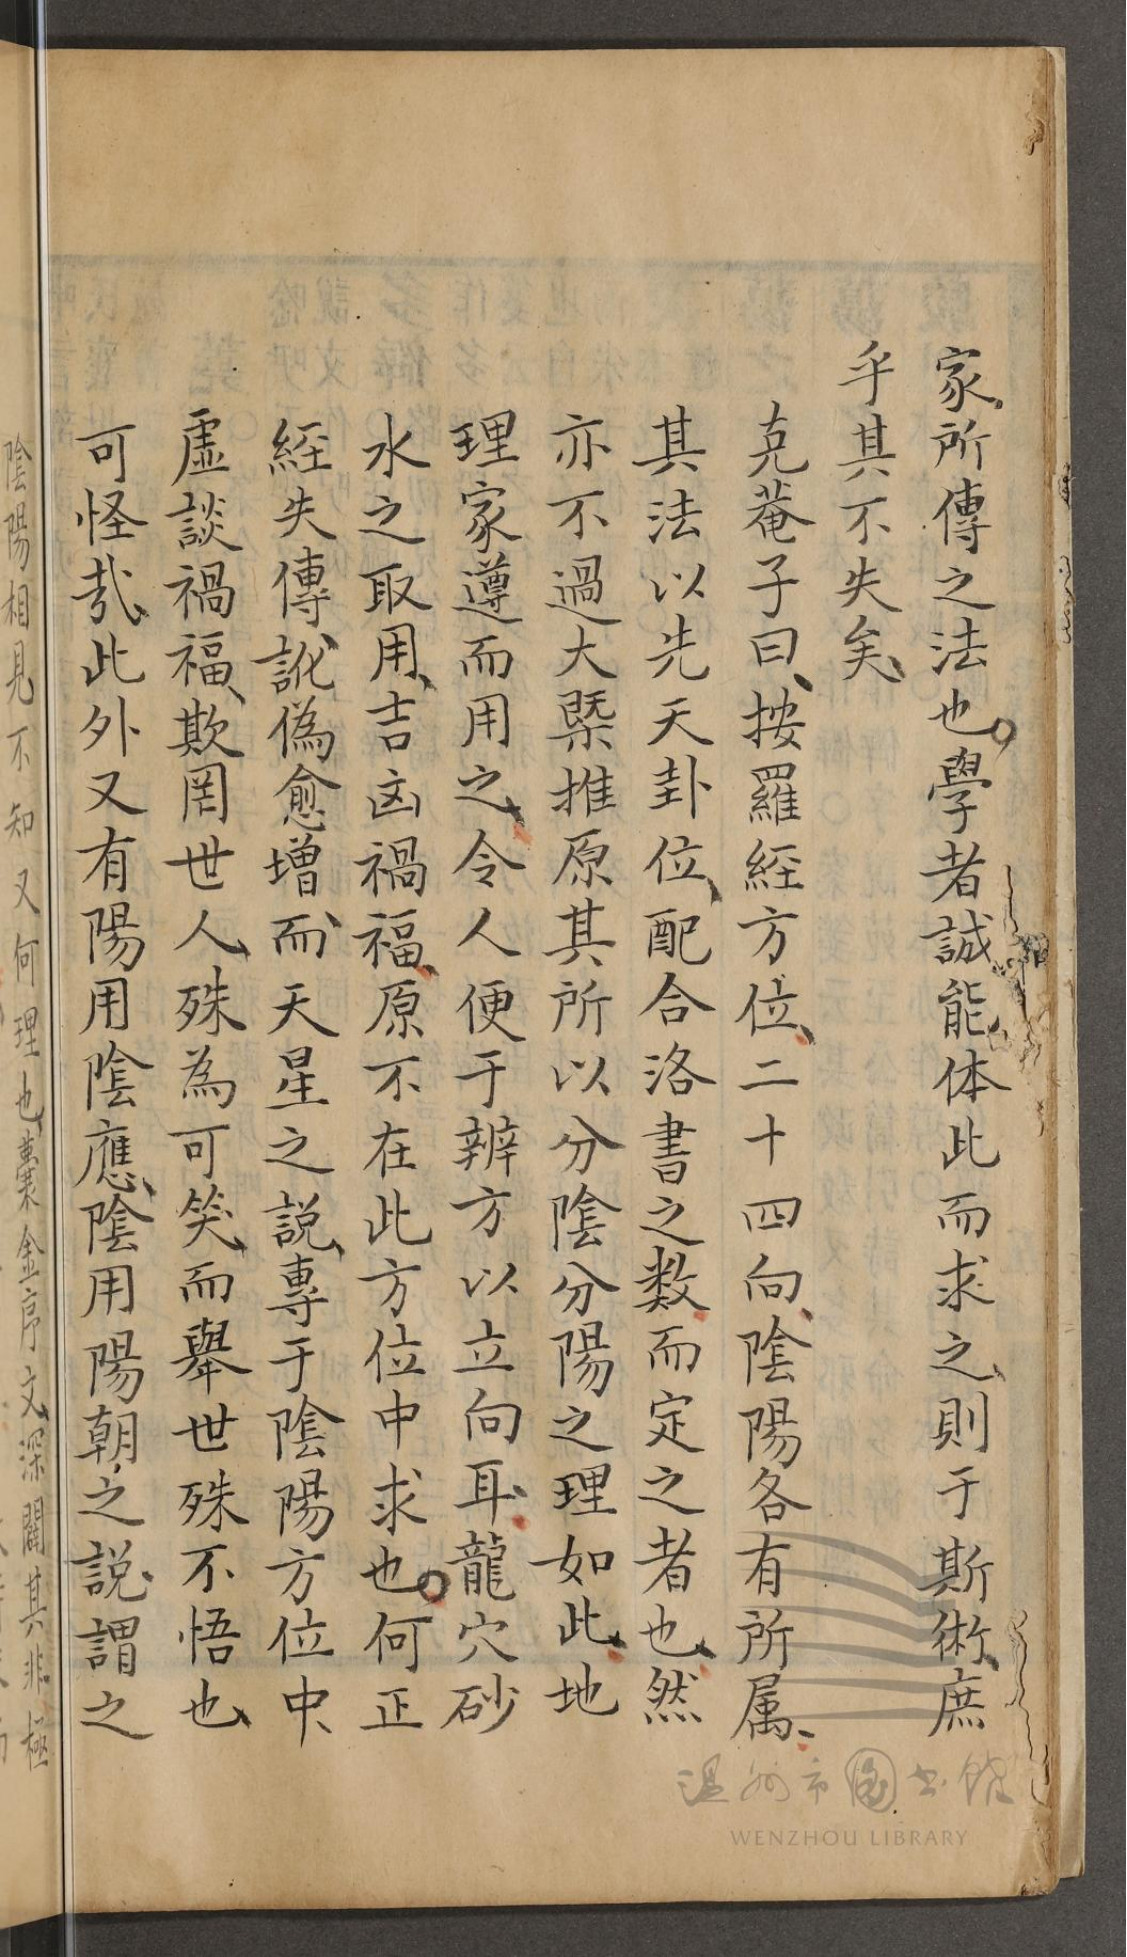 家所傳之法也○學者誠能体此而求之則于斯術庶
乎其不失矣
克菴子曰按羅經方位二十四向陰陽各有所属
其法以先天卦位配合洛書之数而定之者也然
亦不過大槩推原其所以分陰分陽之理如此地
理家遵而用之令人便于辨方以立向耳龍穴砂
水之取用吉凶禍福原不在此方位中求也○何正
經失傳訛偽愈增而天星之説專于陰陽方位中
虛談禍福欺罔世人殊為可笑而舉世殊不悟也
可怪哉此外又有陽用陰應陰用陽朝之説謂之
陰陽相見不知又何理也囊金序文深闢其非極
温州市図书馆
WENZHOU LIBRARY